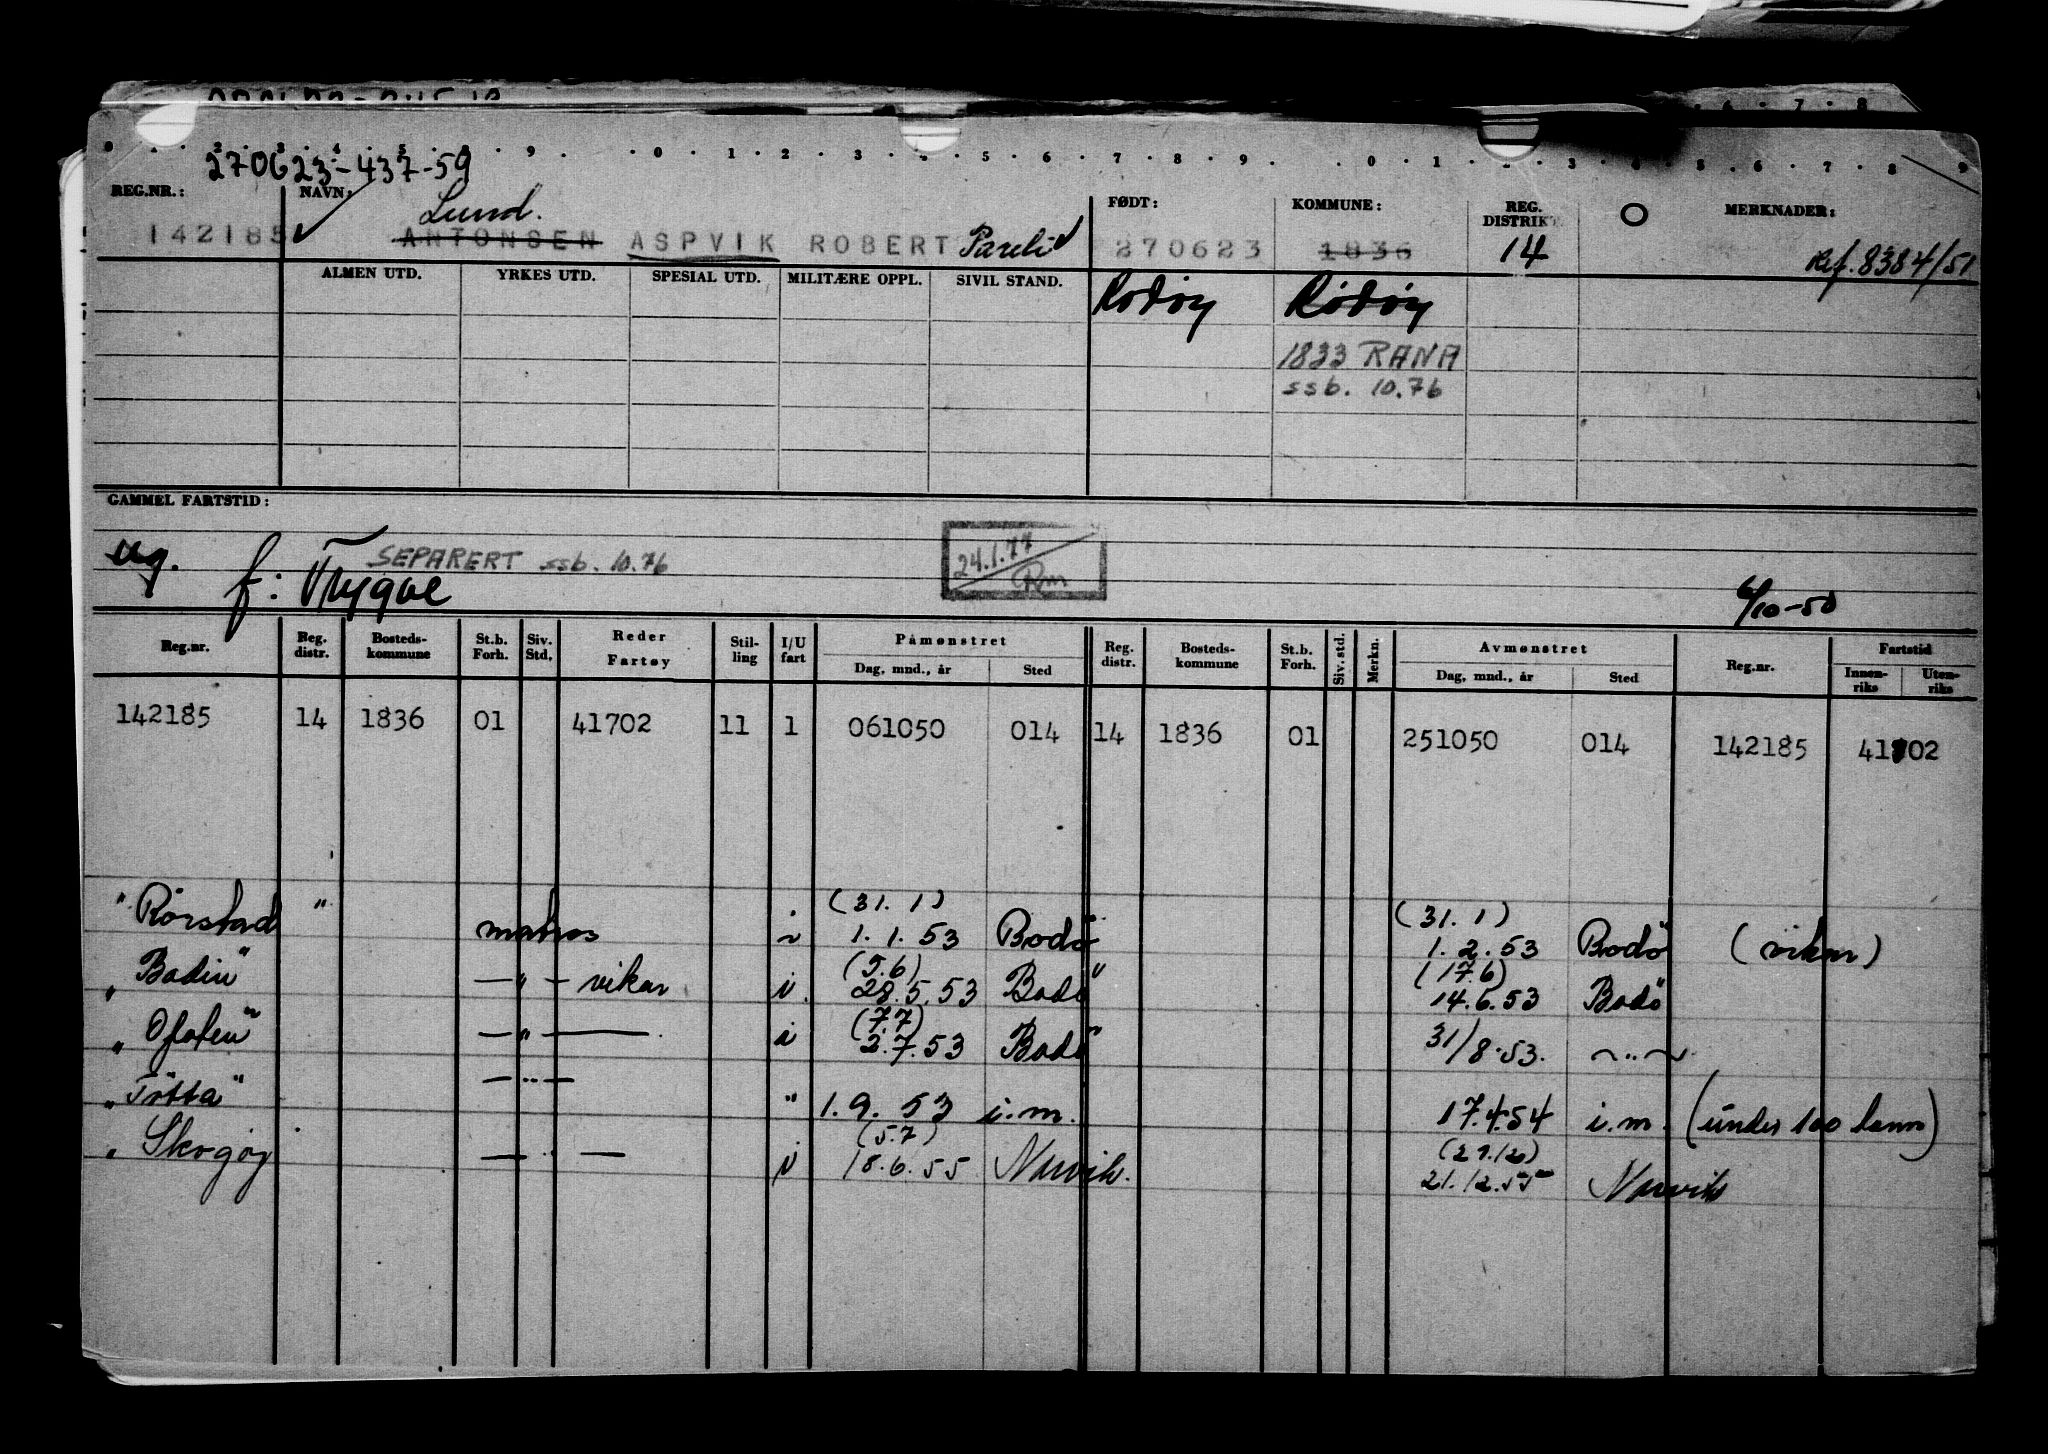 270623-437-59
REG.NR.: NAVN: FØDT: KOMMUNE: REG. DISTRIKT MERKNADER:
Lund.
142185 ANTONSEN ASPVIK ROBERT Pareli 270623 1836 14 Ref. 8384/51
ALMEN UTD. YRKES UTD. SPESIAL UTD. MILITÆRE OPPL. SIVIL STAND.
Rödöy Rödöy
1833 RANA
ssb. 10.76
GAMMEL FARTSTID:
ug. SEPARERT ssb. 10.76 24.1.77
Rm
f: Trygve 6/10-50
Reg.nr. Reg. distr. Bosteds-kommune St.b. Forh. Siv. Std. Reder Fartøy Stil-ling I/U fart Påmønstret Dag, mnd., år Sted Reg. distr. Bosteds-kommune St.b. Forh. Siv. std. Merkn. Avmønstret Dag, mnd., år Sted Reg.nr. Fartstid Innen-riks Uten-riks
142185 14 1836 01 41702 11 1 061050 014 14 1836 01 251050 014 142185 41702
(31. 1) (31. 1)
"Rörstad" matros i 1. 1. 53 Bodö 1. 2. 53 Bodö (vikar)
(5.6) (17.6)
"Bodin" — " — vikar i. 28.5.53 Bodö 14.6.53 Bodö
(7.7)
"Ofoten" — " — i 2.7.53 Bodö 31/8.53. — " —
"Tötta" — " — " 1.9.53 i.m. 17.4.54 i.m. (under 100 tonn)
(5.7) (29.12)
" Skogöy — " — i 18.6.55 Narvik. 21.12.55 Narvik